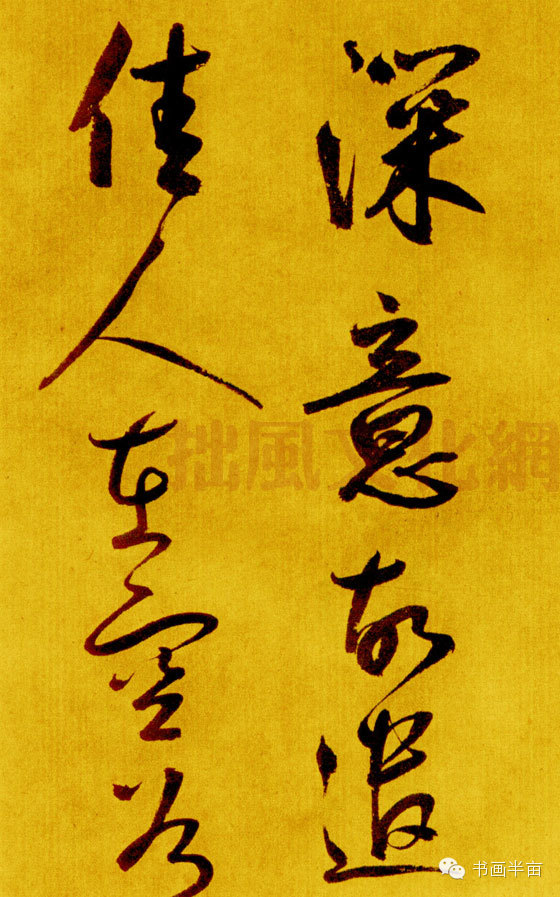 深意故遣
佳人在空谷
拙風文化網
书画半亩